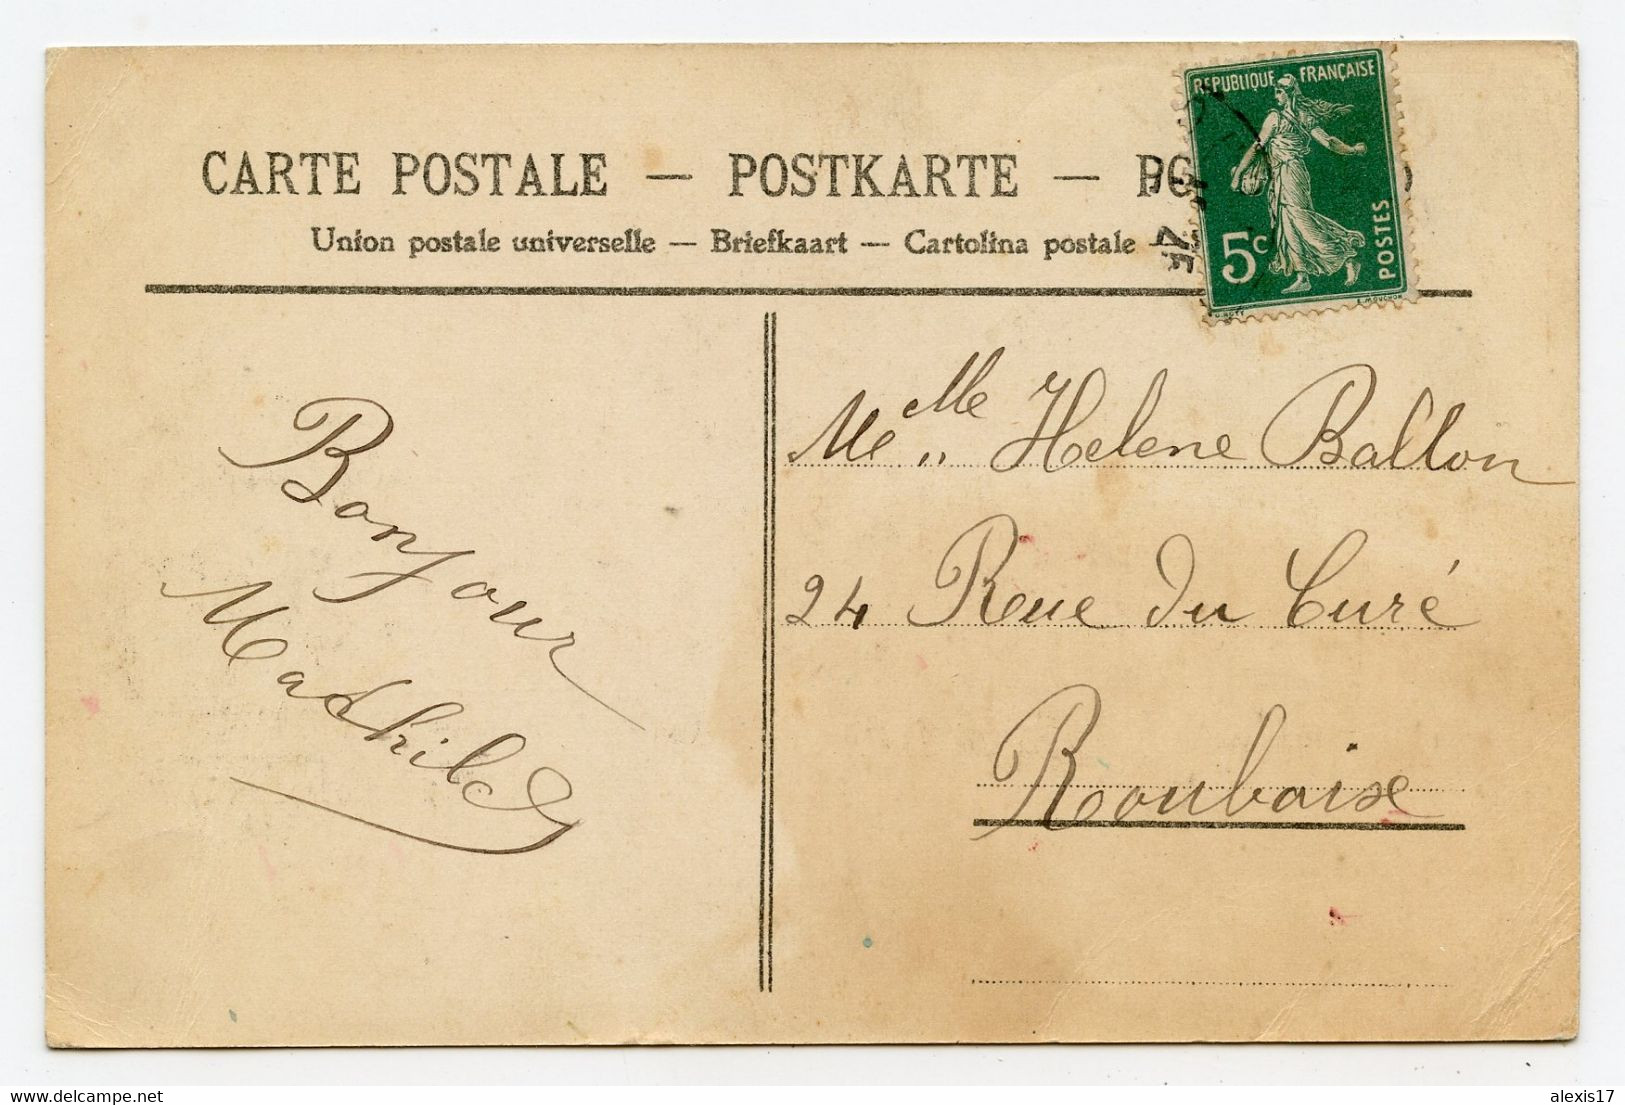 CARTE POSTALE — POSTKARTE —
Union postale universelle — Briefkaart — Cartolina postale
REPUBLIQUE FRANÇAISE
5c
POSTES
E. MOUCHON
Bonjour
Mathilde
Melle Helene Ballon
24 Rue du Curé
Roubaise
www.delcampe.net
alexis17